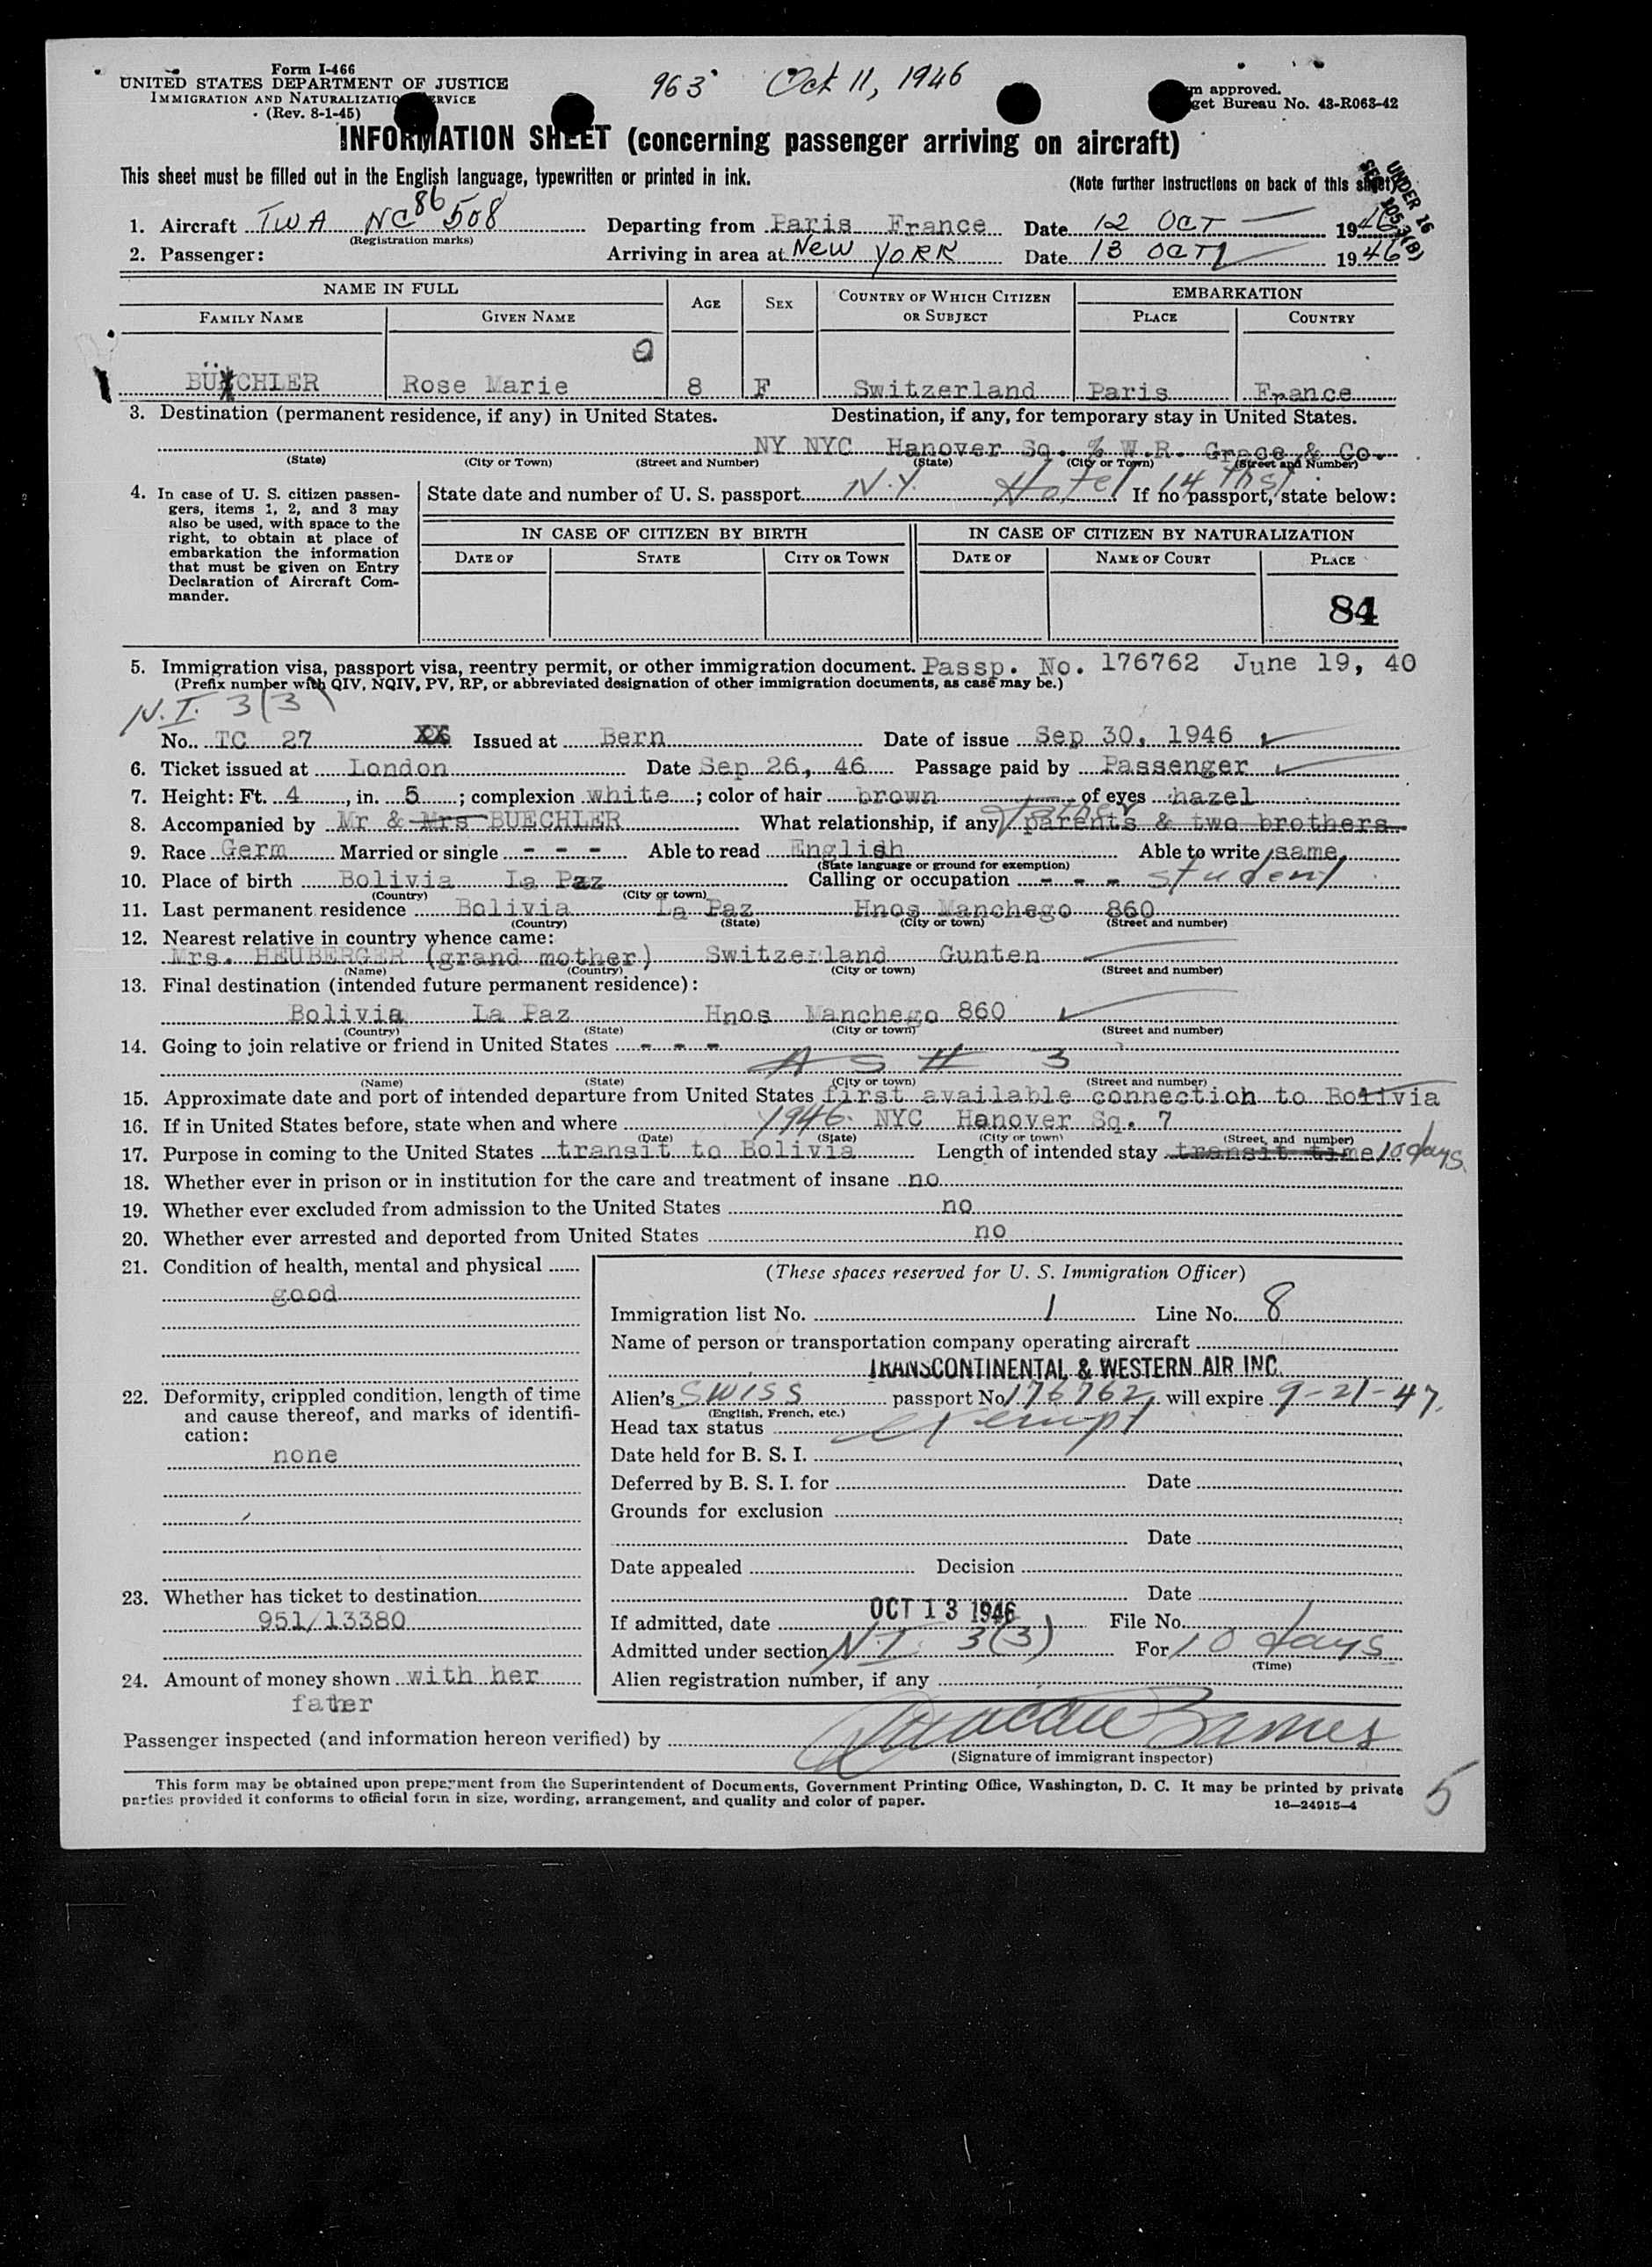 Form I-466
UNITED STATES DEPARTMENT OF JUSTICE
IMMIGRATION AND NATURALIZATION SERVICE
(Rev. 8-1-45)
963 Oct 11, 1946
approved.
get Bureau No. 43-R063-42
INFORMATION SHEET (concerning passenger arriving on aircraft)
This sheet must be filled out in the English language, typewritten or printed in ink.
(Note further instructions on back of this sheet)
UNDER 16
SEC. 105.3(B)
1. Aircraft TWA NC 86508 Departing from Paris France Date 12 OCT 1946
(Registration marks)
2. Passenger: Arriving in area at New YORK Date 13 OCT 1946
NAME IN FULL AGE SEX COUNTRY OF WHICH CITIZEN OR SUBJECT EMBARKATION
FAMILY NAME GIVEN NAME PLACE COUNTRY
BÜCHLER Rose Marie 8 F Switzerland Paris France
3. Destination (permanent residence, if any) in United States. Destination, if any, for temporary stay in United States.
NY NYC Hanover Sq. % W.R. Grace & Co.
(State) (City or Town) (Street and Number) (State) (City or Town) (Street and Number)
4. In case of U. S. citizen passengers, items 1, 2, and 3 may also be used, with space to the right, to obtain at place of embarkation the information that must be given on Entry Declaration of Aircraft Commander.
State date and number of U. S. passport N.Y. Hotel 14 If no passport, state below:
IN CASE OF CITIZEN BY BIRTH IN CASE OF CITIZEN BY NATURALIZATION
DATE OF STATE CITY OR TOWN DATE OF NAME OF COURT PLACE
84
5. Immigration visa, passport visa, reentry permit, or other immigration document. Passp. No. 176762 June 19, 40
(Prefix number with QIV, NQIV, PV, RP, or abbreviated designation of other immigration documents, as case may be.)
N.I. 3(3)
No. TC 27 XX Issued at Bern Date of issue Sep 30, 1946
6. Ticket issued at London Date Sep 26, 46 Passage paid by Passenger
7. Height: Ft. 4, in. 5; complexion white; color of hair brown of eyes hazel
8. Accompanied by Mr & Mrs BUECHLER What relationship, if any father parents & two brothers
9. Race Germ Married or single - - - Able to read English Able to write same
(State language or ground for exemption)
10. Place of birth Bolivia La Paz Calling or occupation - - - student
(Country) (City or town)
11. Last permanent residence Bolivia La Paz Hnos Manchego 860
(Country) (State) (City or town) (Street and number)
12. Nearest relative in country whence came:
Mrs. HEUBERGER (grand mother) Switzerland Gunten
(Name) (Country) (City or town) (Street and number)
13. Final destination (intended future permanent residence):
Bolivia La Paz Hnos Manchego 860
(Country) (State) (City or town) (Street and number)
14. Going to join relative or friend in United States - - -
A S # 3
(Name) (State) (City or town) (Street and number)
15. Approximate date and port of intended departure from United States first available connection to Bolivia
16. If in United States before, state when and where 1946 NYC Hanover Sq. 7
(Date) (State) (City or town) (Street and number)
17. Purpose in coming to the United States transit to Bolivia Length of intended stay transit time 10 days
18. Whether ever in prison or in institution for the care and treatment of insane no
19. Whether ever excluded from admission to the United States no
20. Whether ever arrested and deported from United States no
21. Condition of health, mental and physical
good
22. Deformity, crippled condition, length of time and cause thereof, and marks of identification:
none
23. Whether has ticket to destination
951/13380
24. Amount of money shown with her
father
(These spaces reserved for U. S. Immigration Officer)
Immigration list No. 1 Line No. 8
Name of person or transportation company operating aircraft
TRANSCONTINENTAL & WESTERN AIR INC.
Alien's SWISS passport No. 176762 will expire 9-21-47
(English, French, etc.)
Head tax status exempt
Date held for B. S. I.
Deferred by B. S. I. for Date
Grounds for exclusion
Date
Date appealed Decision
Date
If admitted, date OCT 13 1946 File No.
Admitted under section N.I. 3(3) For 10 days
(Time)
Alien registration number, if any
Passenger inspected (and information hereon verified) by
(Signature of immigrant inspector)
This form may be obtained upon prepayment from the Superintendent of Documents, Government Printing Office, Washington, D. C. It may be printed by private
parties provided it conforms to official form in size, wording, arrangement, and quality and color of paper.
16—24915-4
5